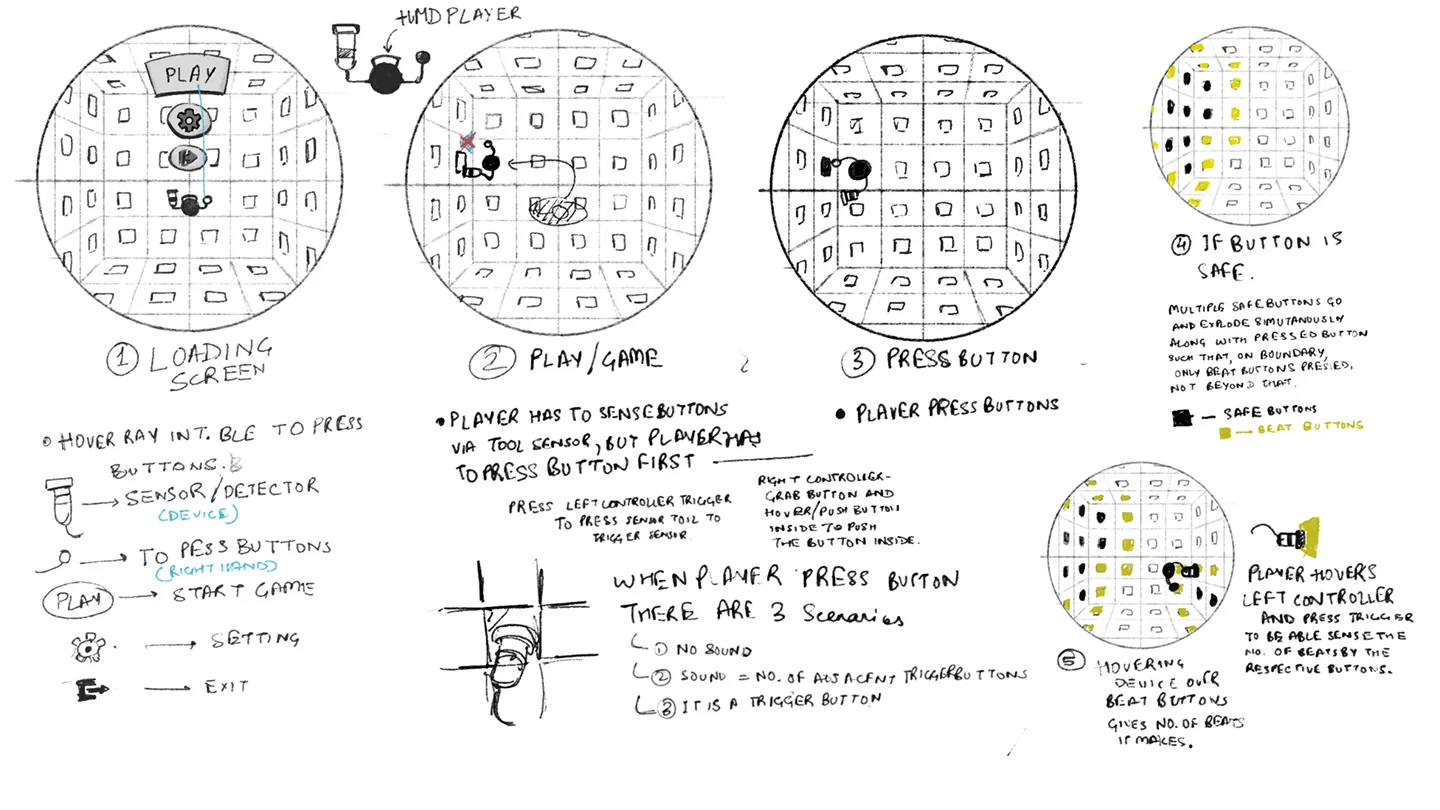 HMD PLAYER
PLAY
① LOADING
SCREEN
② PLAY/GAME
③ PRESS BUTTON
④ IF BUTTON IS
SAFE.
MULTIPLE SAFE BUTTONS GO
AND EXPLODE SIMUTANOUSLY
ALONG WITH PRESSED BUTTON
SUCH THAT, ON BOUNDARY,
ONLY BEAT BUTTONS PRESSED,
NOT BEYOND THAT.
— SAFE BUTTONS
— BEAT BUTTONS
• HOVER RAY INT. BLE TO PRESS
BUTTONS.
→ SENSOR/DETECTOR
(DEVICE)
→ TO PESS BUTTONS
(RIGHT HAND)
PLAY → START GAME
→ SETTING
→ EXIT
• PLAYER HAS TO SENSE BUTTONS
VIA TOOL SENSOR, BUT PLAYER HAS
TO PRESS BUTTON FIRST —
PRESS LEFT CONTROLLER TRIGGER
TO PRESS SENSOR TOOL TO
TRIGGER SENSOR.
RIGHT CONTROLLER-
GRAB BUTTON AND
HOVER/PUSH BUTTON
INSIDE TO PUSH
THE BUTTON INSIDE.
• PLAYER PRESS BUTTONS
WHEN PLAYER PRESS BUTTON
THERE ARE 3 Scenarios
① NO SOUND
② SOUND = NO. OF ADJACENT TRIGGER BUTTONS
③ IT IS A TRIGGER BUTTON
⑤ HOVERING
DEVICE OVER
BEAT BUTTONS
GIVES NO. OF BEATS
IT MAKES.
PLAYER HOVERS
LEFT CONTROLLER
AND PRESS TRIGGER
TO BE ABLE SENSE THE
NO. OF BEATS BY THE
RESPECTIVE BUTTONS.